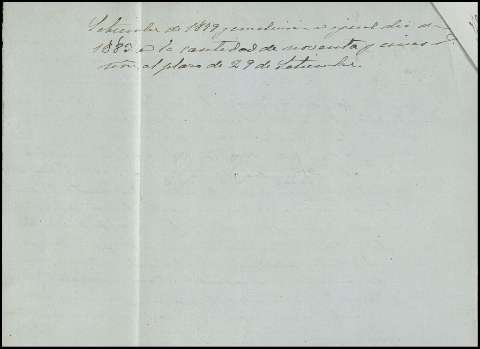 Setiembre de 1879 y concluirán en igual día de
1883 en la cantidad de noventa y cinco
al plazo de 29 de Setiembre.